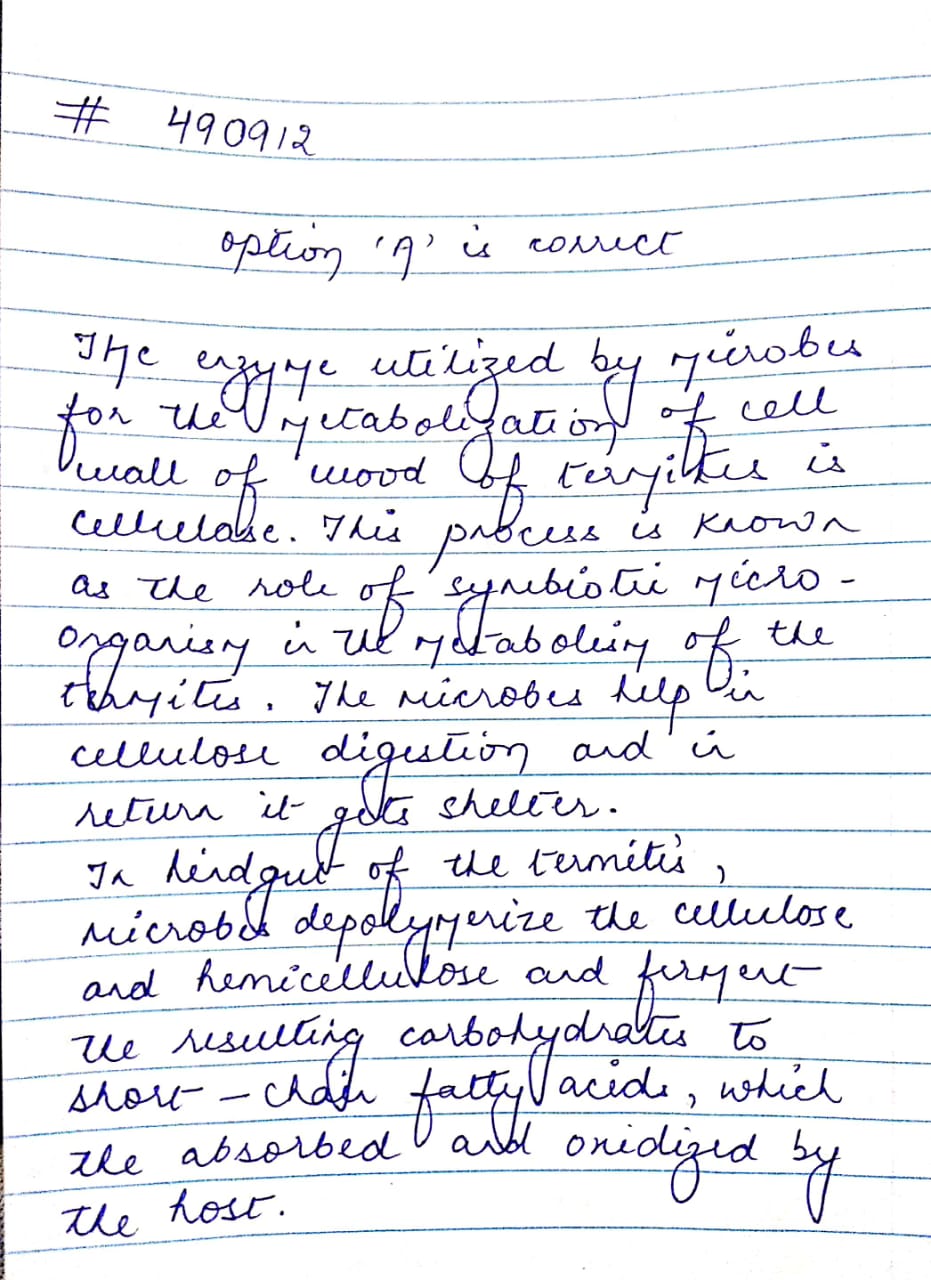 # 490912
option 'A' is correct
The enzyme utilized by microbes
for the metabolization of cell
wall of wood of termites is
cellulase. This process is known
as the role of symbiotic micro-
organism in the metabolism of the
termites. The microbes help in
cellulose digestion and in
return it gets shelter.
In hindgut of the termites,
microbes depolymerize the cellulose
and hemicellulose and ferment
the resulting carbohydrates to
short-chain fatty acids, which
the absorbed and oxidized by
the host.